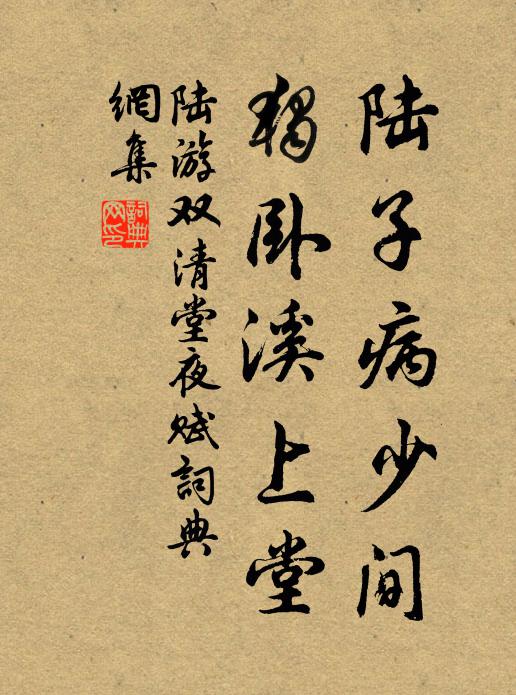 陆子病少间
独卧溪上堂
陆游双清堂夜赋詞典
網集
詞典
网印